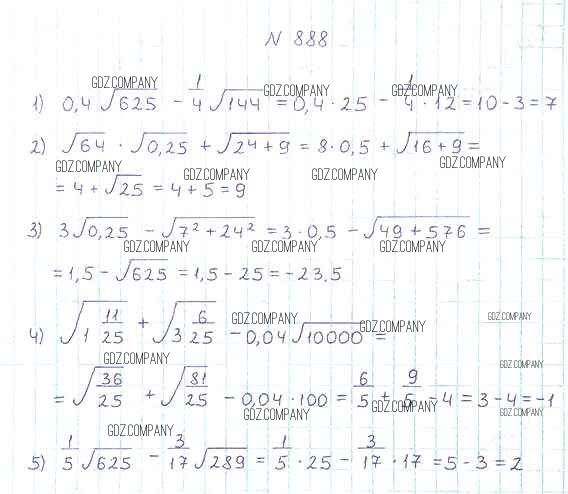 N 888
GDZ.COMPANY GDZ.COMPANY GDZ.COMPANY
1) 0,4 √625 - 1/4 √144 = 0,4 · 25 - 1/4 · 12 = 10 - 3 = 7
2) √64 · √0,25 + √(2⁴ + 9) = 8 · 0,5 + √(16 + 9) =
GDZ.COMPANY GDZ.COMPANY GDZ.COMPANY
= 4 + √25 = 4 + 5 = 9
3) 3√0,25 - √(7² + 24²) = 3 · 0,5 - √(49 + 576) =
GDZ.COMPANY GDZ.COMPANY GDZ.COMPANY
= 1,5 - √625 = 1,5 - 25 = -23,5
GDZ.COMPANY GDZ.COMPANY GDZ.COMPANY
4) √(1 11/25) + √(3 6/25) - 0,04 √10000 =
GDZ.COMPANY GDZ.COMPANY
= √(36/25) + √(81/25) - 0,04 · 100 = 6/5 + 9/5 - 4 = 3 - 4 = -1
GDZ.COMPANY GDZ.COMPANY GDZ.COMPANY
GDZ.COMPANY
5) 1/5 √625 - 3/17 √289 = 1/5 · 25 - 3/17 · 17 = 5 - 3 = 2